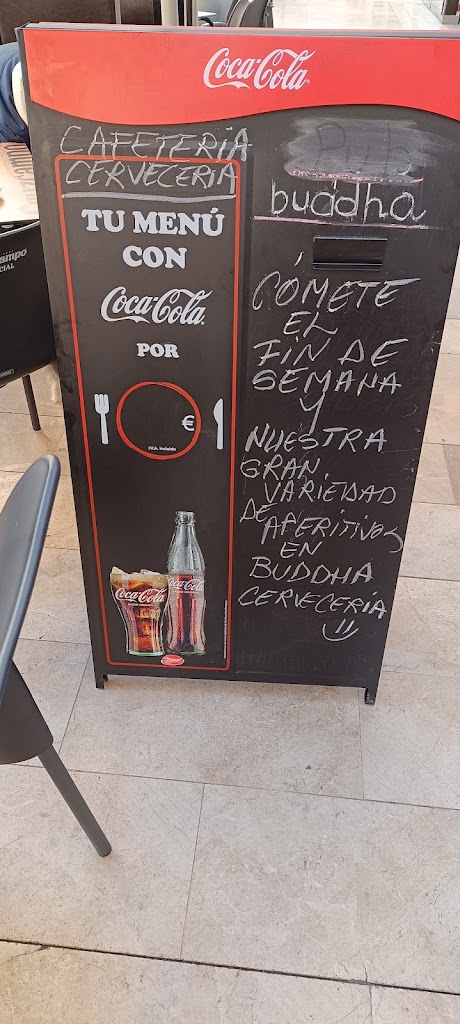 Coca-Cola
CAFETERIA
CERVECERIA
TU MENÚ
CON
Coca-Cola
POR
€
I.V.A. incluido
Coca-Cola
Coca-Cola
Pub
buddha
CÓMETE
EL
FIN DE
SEMANA
Y
NUESTRA
GRAN
VARIEDAD
DE APERITIVOS
EN
BUDDHA
CERVECERÍA
ampo
CIAL